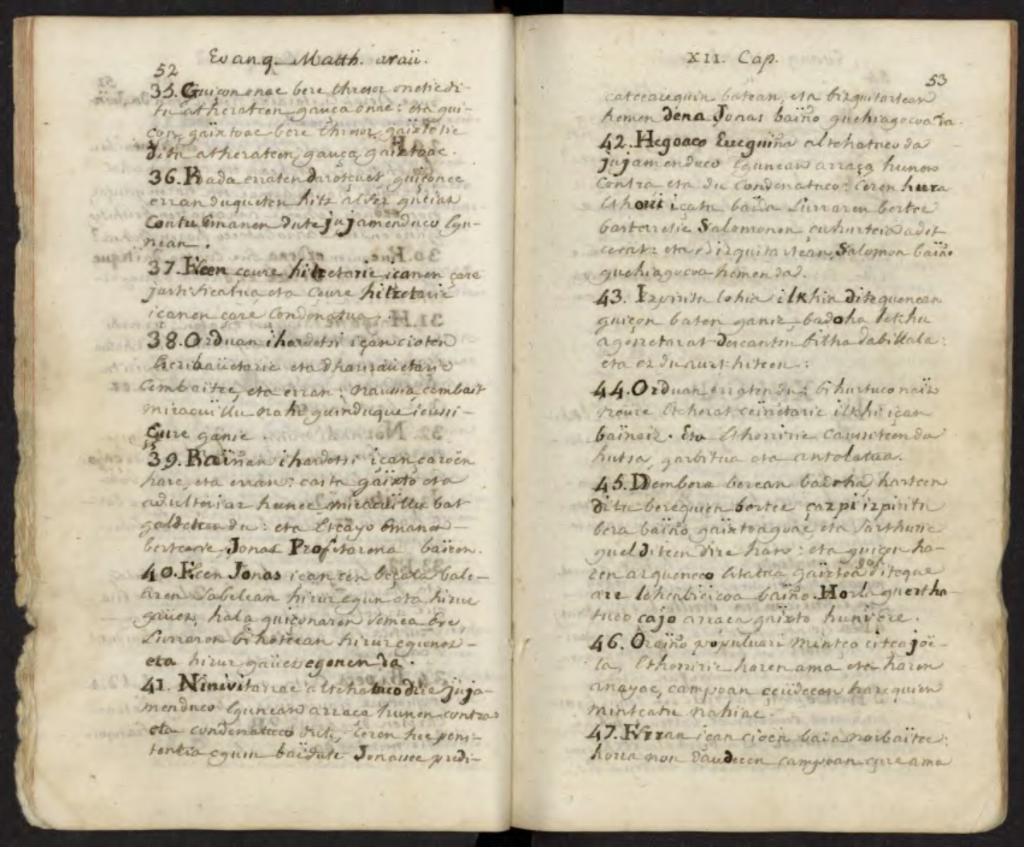 52
Evang. Matth. araü.
35. Guiçon onae bere thresor onetic di-
tu atheratcen gauça onac: eta gui-
çon gaixtoac bere thresor gaixtotic
ditu atheratcen gauça gaixtoac.
36. Bada erraten darotçuet guiçonec
erran duqueten hitz alfer guciaz
Contu emanen dute jujamenduco Egu-
nean.
37. Ecen ceure hitzetaric içanen çare
justificatua eta Ceure hitzetaric
içanen çare Condenatua.
38. Orduan ihardetsi içan cioten
Scribauetaric eta
Cembaitec, eta erran: Nausia cembait
miracuillu nahi guinduque icussi
Çure ganic.
39. Baiñan ihardetsi içan çaroën
harc, eta erran: casta gaixto eta
adulteriaz hunec miracuillu bat
galdetcen du: eta Etçayo emanen
bertceric Jonas Profetarena baicen.
40. Ecen Jonas içan cen beçala bale-
aren Sabelean hirur egun eta hirur
gauez, hala guiçonaren Semea ere,
Lurraren bihotcean hirur egunez
eta hirur gauez egonen da.
41. Ninivitarrac altchatuco dire juja-
menduco Egunean arraça hunen contra
eta condenatuco dute, Ceren hec peni-
tentcia eguin baidute Jonasec predi-
XII. Cap.
53
catcearequin batean, eta bizquitartean
hemen dena Jonas baiño guehiagocoa da.
42. Hegoaco Erreguiña altchatuco da
jujamenduco Egunean arraça hunen
Contra eta du Condenatuco: Ceren hura
Ethorri içan baita Lurraren bertce
bazterretic Salomonen çuhurtcia adit
cerat: eta bizquitartean, Salomon baiño
guehiagocoa hemen da.
43. Izpiritu lohia ilkhia ditequenean
guiçon baten ganic, badoha lekhu
agorretarat descantsu bilha dabillala:
eta ez du aurkhitcen:
44. Orduan erraten du: bihurtuco naiz
neure Etcherat, ceinetaric ilkhi içan
bainaiz. Eta Ethorriric Causitcen da
hutsa, garbitua eta antolatua.
45. Dembora berean badoha hartcen
ditu berequien bertce çazpi izpiritu
bera baiño gaixtoagoac eta Sarthuric
guelditcen dire han: eta guiçon ha-
ren azqueneco Estatua gaixtoa goa diteque
lehenbicicoa baiño. Hor la guertha-
tuco çajo arraça gaixto huni ere.
46. Oraiño populuari mintço citçajoe-
la, Ethorriric haren ama eta haren
anayac, campoan ceudecen harequien
mintçatu nahiac.
47. Erran içan cioen bada norbaitec:
Horra non daudecen campoan çure ama